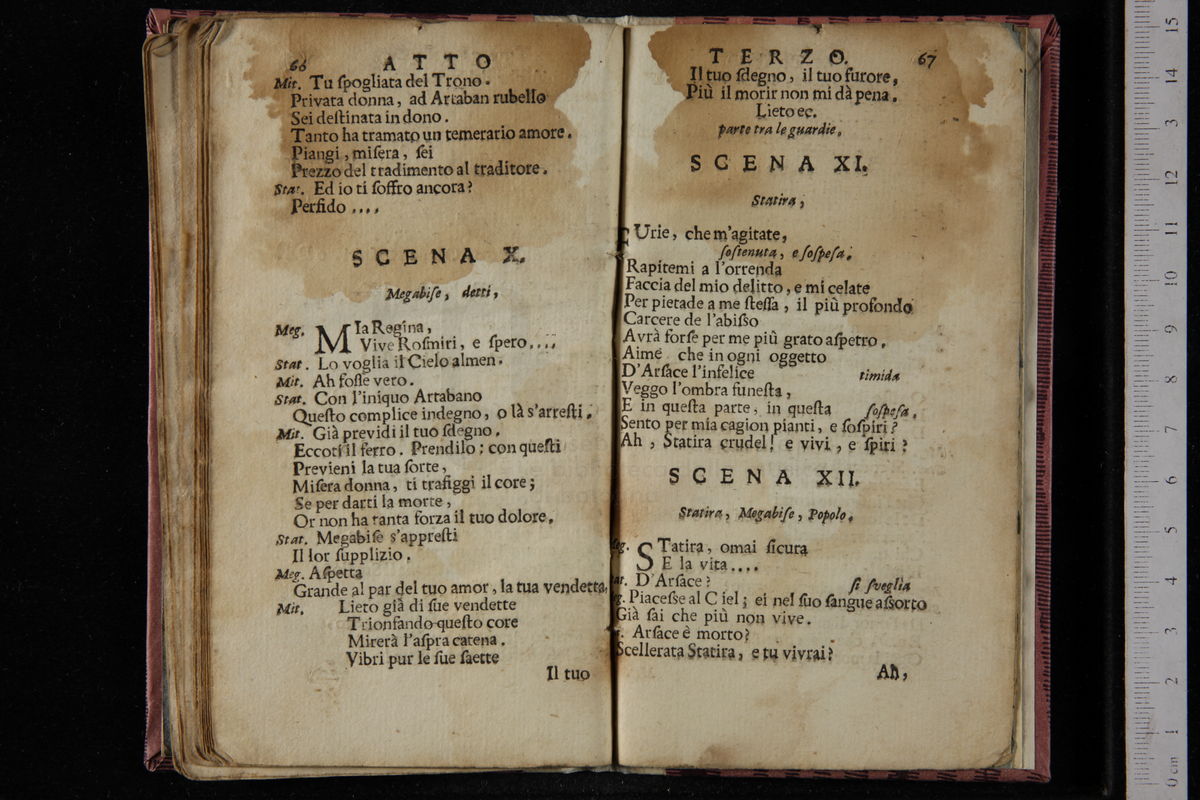 66 ATTO
Mit. Tu ſpogliata del Trono.
Privata donna, ad Artaban rubello
Sei deſtinata in dono.
Tanto ha tramato un temerario amore.
Piangi, miſera, ſei
Prezzo del tradimento al traditore.
Stat. Ed io ti ſoffro ancora?
Perfido ....
SCENA X.
Megabiſe, detti,
Meg. MIa Regina,
Vive Roſmiri, e ſpero....
Stat. Lo voglia il Cielo almen.
Mit. Ah foſſe vero.
Stat. Con l'iniquo Artabano
Queſto complice indegno, o là s'arreſti.
Mit. Già previdi il tuo ſdegno.
Eccoti il ferro. Prendilo: con queſti
Previeni la tua ſorte,
Miſera donna, ti trafiggi il core;
Se per darti la morte,
Or non ha tanta forza il tuo dolore.
Stat. Megabiſe s'appreſti
Il lor ſupplizio.
Meg. Aſpetta
Grande al par del tuo amor, la tua vendetta.
Mit. Lieto già di ſue vendette
Trionfando queſto core
Mirerà l'aſpra catena.
Vibri pur le ſue ſaette
Il tuo
TERZO. 67
Il tuo ſdegno, il tuo furore,
Più il morir non mi dà pena.
Lieto ec.
parte tra le guardie.
SCENA XI.
Statira,
FUrie, che m'agitate,
ſoſtenuta, e ſoſpeſa.
Rapitemi a l'orrenda
Faccia del mio delitto, e mi celate
Per pietade a me ſteſſa, il più profondo
Carcere de l'abiſſo
Avrà forſe per me più grato aſpetro.
Aimè che in ogni oggetto
D'Arſace l'infelice timida
Veggo l'ombra funeſta,
E in queſta parte, in queſta ſoſpeſa.
Sento per mia cagion pianti, e ſoſpiri?
Ah, Statira crudel! e vivi, e ſpiri?
SCENA XII.
Statira, Megabiſe, Popolo.
eg. STatira, omai ſicura
E la vita....
at. D'Arſace? ſi ſveglia
eg. Piaceſſe al Ciel; ei nel ſuo ſangue aſſorto
Già ſai che più non vive.
Arſace è morto?
Scellerata Statira, e tu vivrai?
Ah,
15
14
13
12
11
10
9
8
7
6
5
4
3
2
1
0 cm